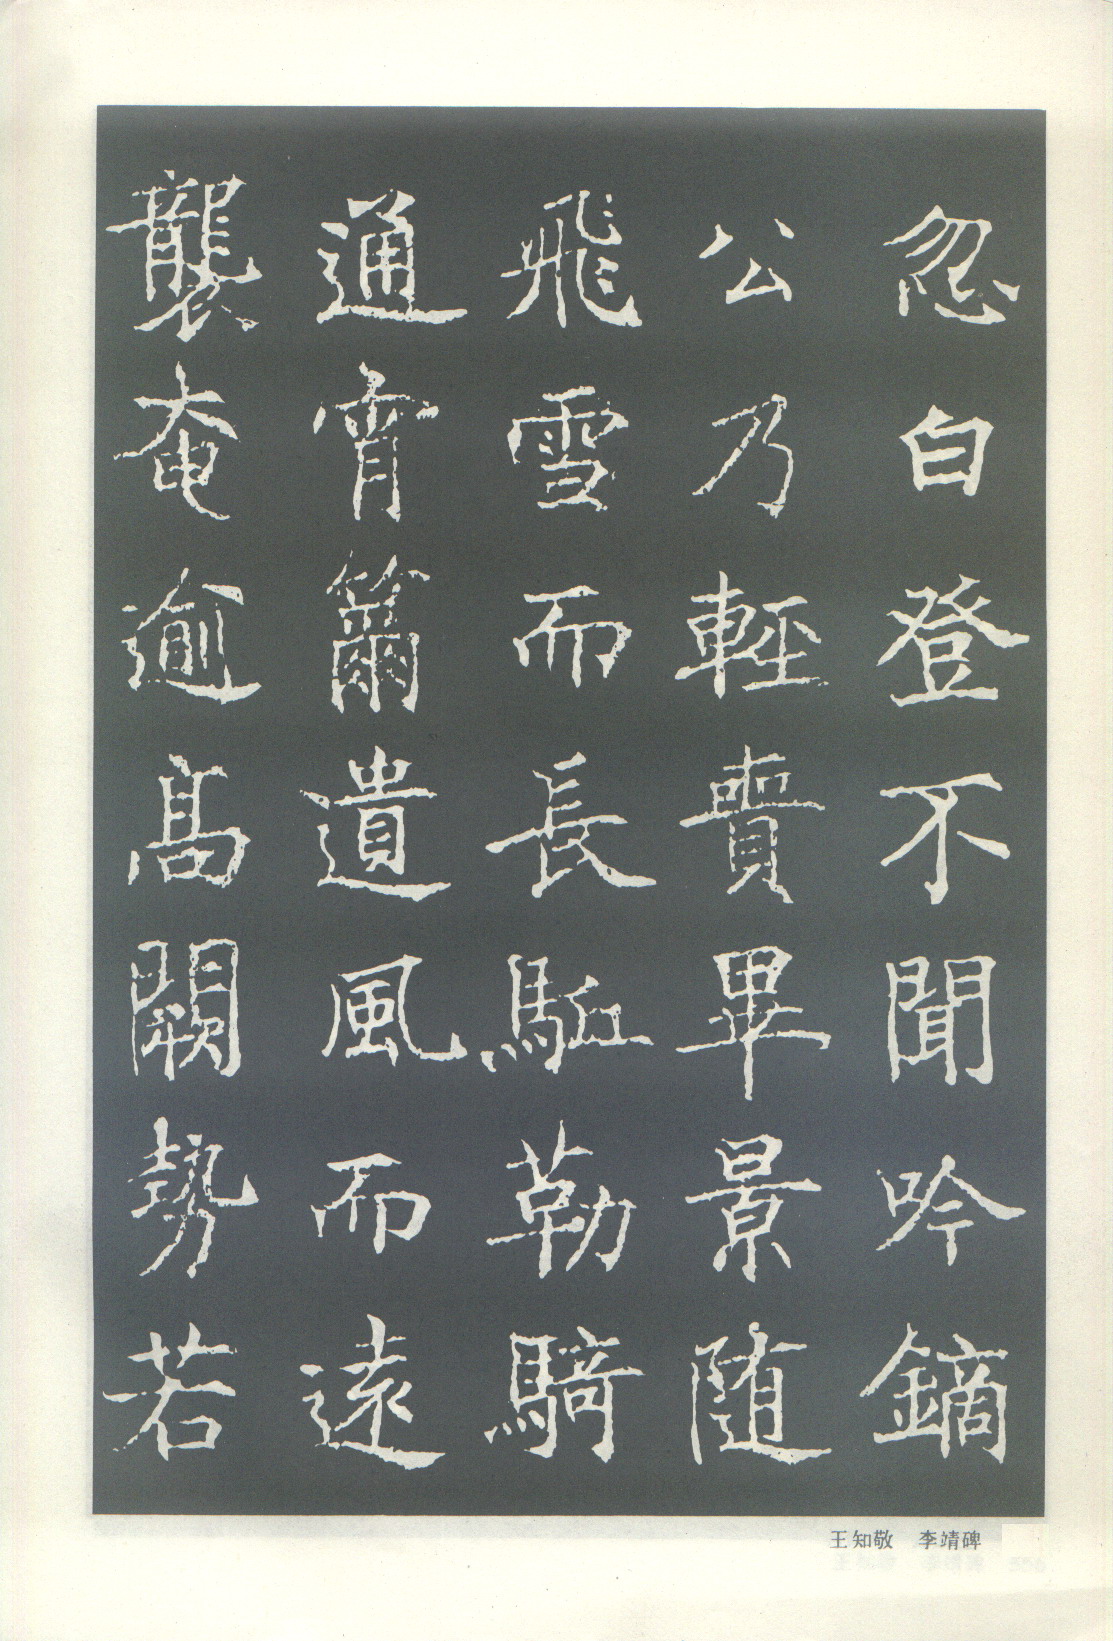 忽白登不聞吟鏑
公乃輕賷畢景随
飛雪而長駈勒騎
通宵籋遺風而遠
襲奄逾髙闕勢若
王知敬 李靖碑